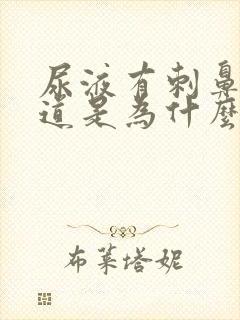 尿液有刺鼻
道是為什麼
布萊塔妮